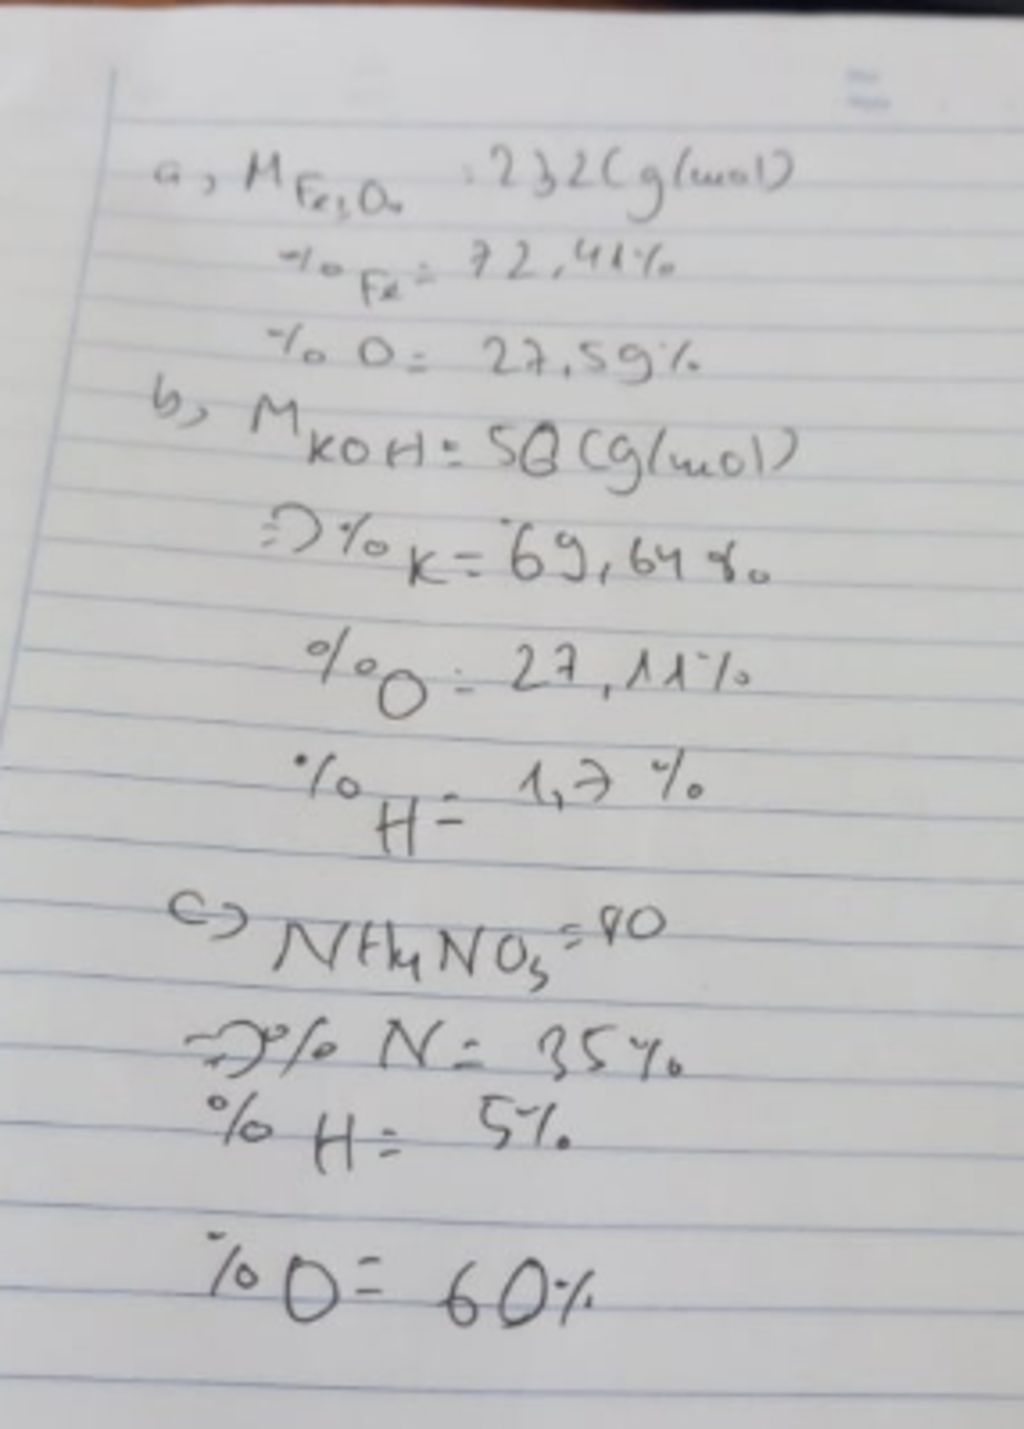 a, M Fe3O4 = 232 (g/mol)
% Fe = 72,41%
% O = 27,59%
b, M KOH = 56 (g/mol)
=> % K = 69,64 %
% O = 27,11%
% H = 1,7 %
c, NH4NO3 = 80
=> % N = 35%
% H = 5%
% O = 60%